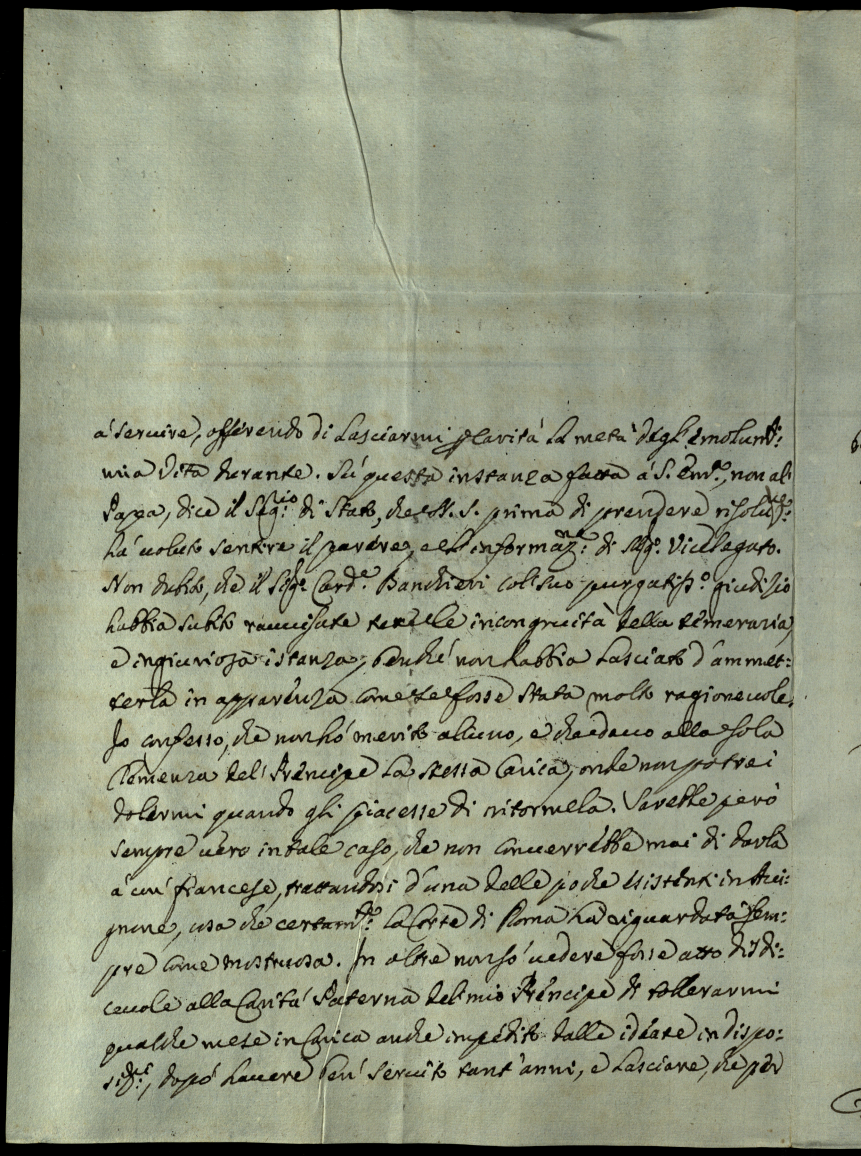 à seruire, offerendo di lasciarmi p carità la metà degl'emolumti:
mia vita durante. Sù questa instanza fatta à S. Emza, non al
Papa, dice il Segrio: di Stato, che N. S. prima di prendere risoluzne:
hà uoluto sentire il parere, e l'informazne: di Mgr. Vicelegato.
Non dubito, che il Sigr Cardle Banchieri col suo purgatisso: giudizio
habbia subito rauuisate tutte le incongruità della temeraria,
e ingiuriosa istanza, benche non habbia lasciato d'ammet:
terla in apparenza come se fosse stata molto ragioneuole.
Io confesso, che non hò merito alcuno, e che deuo alla sola
Clemenza del Prencipe la stessa Carica, onde non potrei
dolermi quando gli piacesse di ritormela. Sarebbe però
sempre uero in tale caso, che non conuerrebbe mai di darla
à un francese, trattandosi d'una delle poche esistenti in Aui:
gnone, cosa che certamte: la Corte di Roma hà riguardata sem:
pre come mostruosa. In oltre non sò uedere fosse atto disdi:
ceuole alla Carità Paterna del mio Prencipe di tollerarmi
qualche mese in Carica anche impedito dalle ideate indispo:
sizni:, dopò hauere ben seruito tant'anni, e lasciare, che per